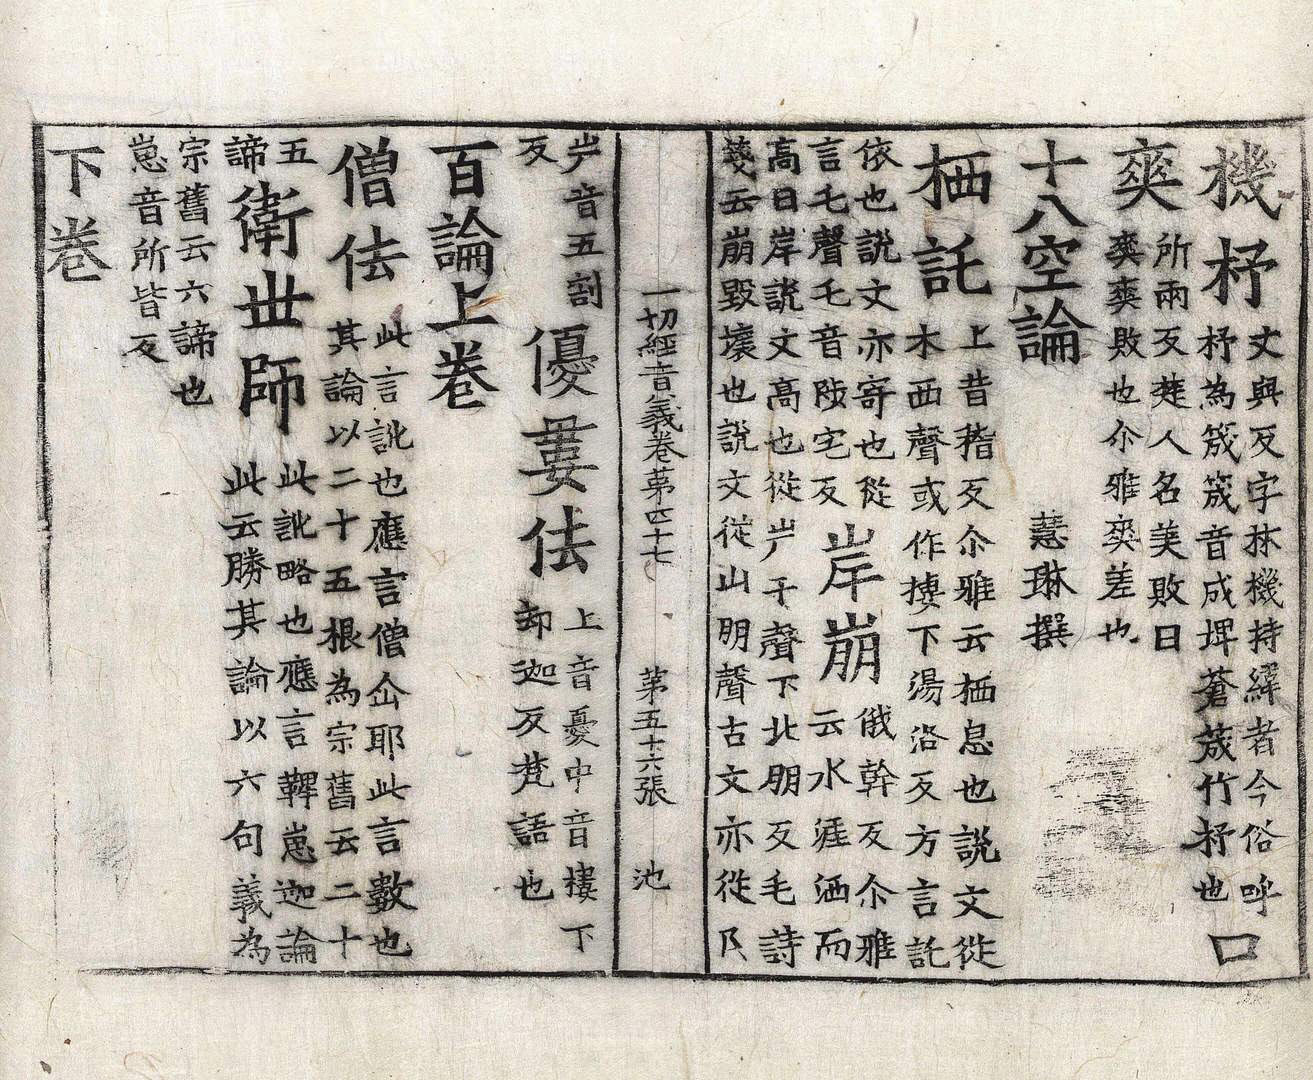 機杼
丈與反字林機持繹者今俗呼
杼為筬筬音成埤蒼筬竹杼也
口
爽
所兩反楚人名美敗曰
爽爽敗也尒雅爽差也
十八空論
慧琳撰
栖託
上昔稽反尒雅云栖息也說文從
木西聲或作㨄下湯洛反方言託
依也說文亦寄也從
言乇聲乇音陟宅反
岸崩
俄幹反尒雅
云水涯洒而
高曰岸說文高也從屵干聲下北朋反毛詩
箋云崩毀壞也說文從山朋聲古文亦從𨸏
一切經音義卷第四十七
第五十六張
池
屵音五割
反
優婁佉
上音憂中音樓下
却迦反梵語也
百論上卷
僧佉
此言訛也應言僧企耶此言數也
其論以二十五根為宗舊云二十
五
諦
衛世師
此訛略也應言鞞崽迦論
此云勝其論以六句義為
宗舊云六諦也
崽音所皆反
下卷